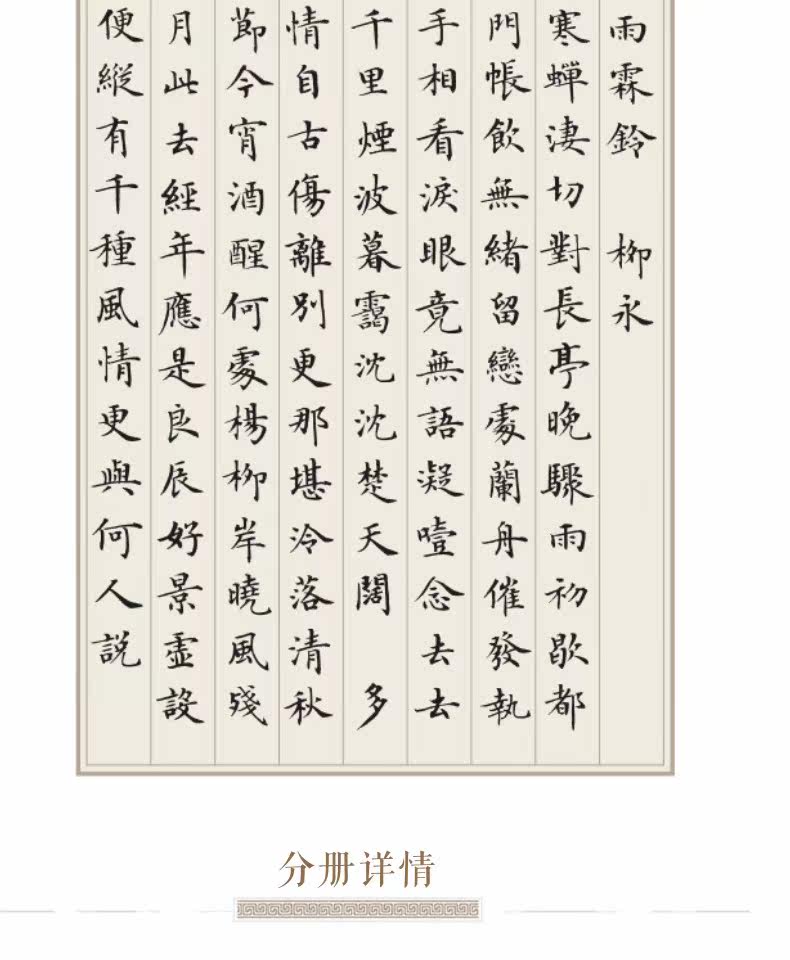 雨霖鈴 柳永
寒蟬淒切對長亭晚驟雨初歇都
門帳飲無緒留戀處蘭舟催發執
手相看淚眼竟無語凝噎念去去
千里煙波暮靄沈沈楚天闊 多
情自古傷離別更那堪泠落清秋
節今宵酒醒何處楊柳岸曉風殘
月此去經年應是良辰好景虛設
便縱有千種風情更與何人說
分册详情